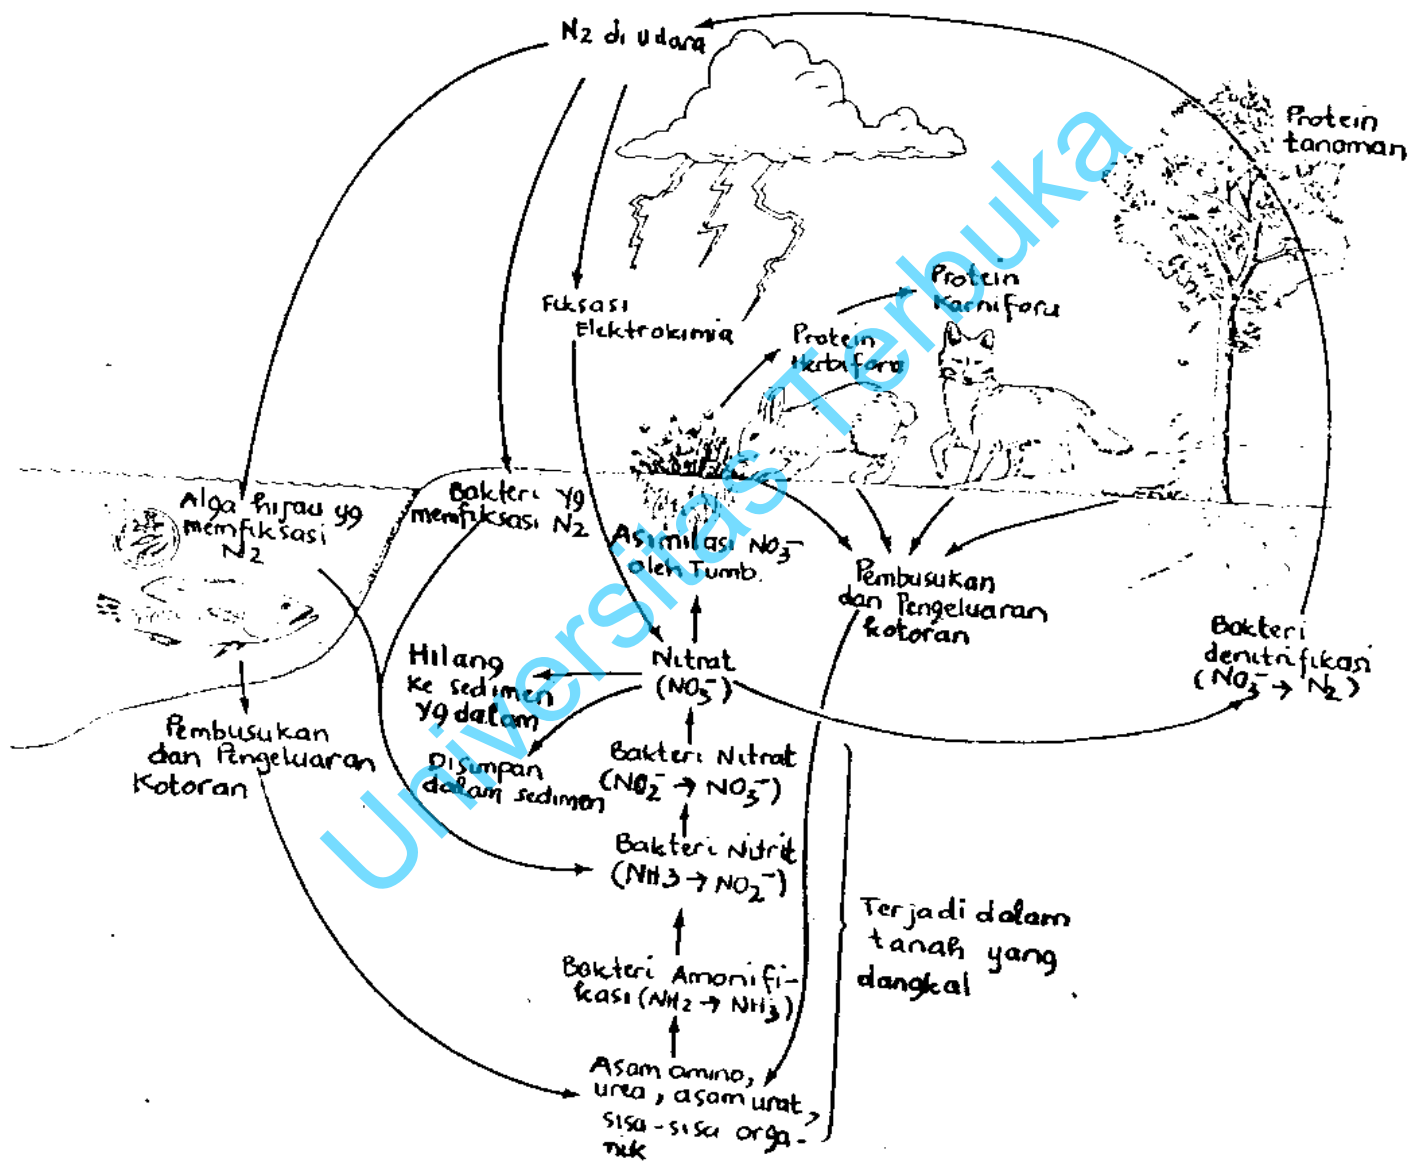 N2 di udara
Protein
tanaman
Protein
Karnifora
Fiksasi
Elektrokimia
Protein
Herbifora
Alga hijau yg
memfiksasi
N2
Bakteri yg
memfiksasi N2
Asimilasi NO3-
oleh Tumb.
Pembusukan
dan Pengeluaran
kotoran
Bakteri
denitrifikasi
(NO3- → N2)
Hilang
ke sedimen
yg dalam
Nitrat
(NO3-)
Pembusukan
dan Pengeluaran
Kotoran
Disimpan
dalam sedimen
Bakteri Nitrat
(NO2- → NO3-)
Bakteri Nitrit
(NH3 → NO2-)
Terjadi dalam
tanah yang
dangkal
Bakteri Amonifi-
kasi (NH2 → NH3)
Asam amino,
urea, asam urat,
sisa-sisa orga-
nik
Universitas Terbuka